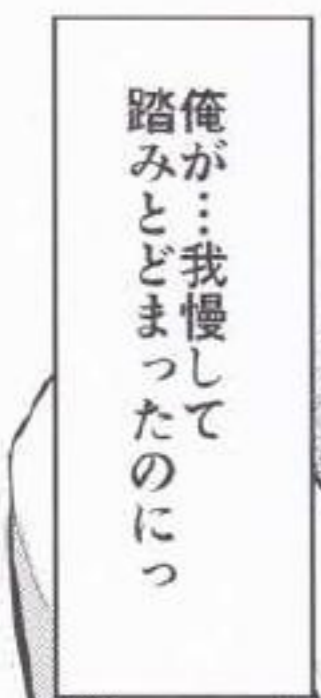 俺が…我慢して
踏みとどまったのにっ